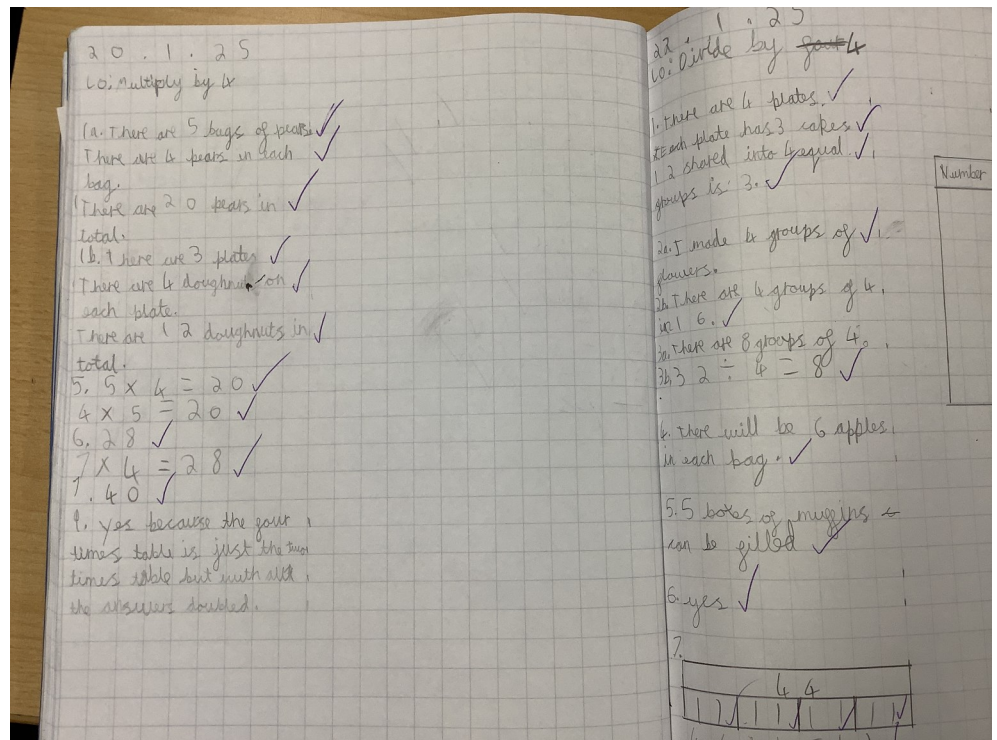 20.1.25
LO: Multiply by 4
1a. There are 5 bags of pears.
There are 4 pears in each
bag.
There are 20 pears in
total.
1b. There are 3 plates
There are 4 doughnuts on
each plate.
There are 12 doughnuts in
total.
5. 5 x 4 = 20
4 x 5 = 20
6. 28
7 x 4 = 28
7. 40
9. yes because the four
times table is just the two
times table but with all
the answers doubled.
22.1.25
LO: Divide by four 4
1. There are 4 plates.
Each plate has 3 cakes
12 shared into 4 equal
groups is 3.
2a. I made 4 groups of
flowers.
2b. There are 4 groups of 4
in 16.
3a. There are 8 groups of 4.
3b. 32 ÷ 4 = 8
4. There will be 6 apples
in each bag.
5. 5 boxes of muffins
can be filled
6. yes
7.
44
11 11 11 11
Number